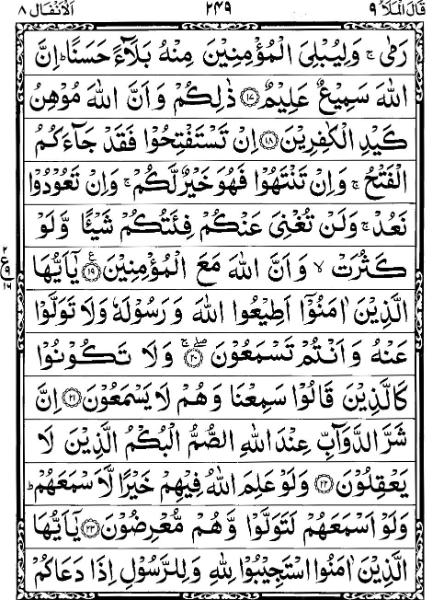 قَالَ الْمَلَأُ ٩ ٢٤٩ اَلْاَنْفَال ٨
رَمٰىۚ وَلِيُبْلِيَ الْمُؤْمِنِيْنَ مِنْهُ بَلَآءً حَسَنًاؕ اِنَّ
اللّٰهَ سَمِيْعٌ عَلِيْمٌ ﴿١٧﴾ ذٰلِكُمْ وَاَنَّ اللّٰهَ مُوْهِنُ
كَيْدِ الْكٰفِرِيْنَ ﴿١٨﴾ اِنْ تَسْتَفْتِحُوْا فَقَدْ جَآءَكُمُ
الْفَتْحُۚ وَاِنْ تَنْتَهُوْا فَهُوَ خَيْرٌ لَّكُمْۚ وَاِنْ تَعُوْدُوْا
نَعُدْۚ وَلَنْ تُغْنِيَ عَنْكُمْ فِئَتُكُمْ شَيْـًٔا وَّلَوْ
كَثُرَتْۙ وَاَنَّ اللّٰهَ مَعَ الْمُؤْمِنِيْنَ ﴿١٩﴾ يٰٓاَيُّهَا
٢ ع ١٦
الَّذِيْنَ اٰمَنُوْٓا اَطِيْعُوا اللّٰهَ وَرَسُوْلَهٗ وَلَا تَوَلَّوْا
عَنْهُ وَاَنْتُمْ تَسْمَعُوْنَ ﴿٢٠﴾ وَلَا تَكُوْنُوْا
كَالَّذِيْنَ قَالُوْا سَمِعْنَا وَهُمْ لَا يَسْمَعُوْنَ ﴿٢١﴾ اِنَّ
شَرَّ الدَّوَآبِّ عِنْدَ اللّٰهِ الصُّمُّ الْبُكْمُ الَّذِيْنَ لَا
يَعْقِلُوْنَ ﴿٢٢﴾ وَلَوْ عَلِمَ اللّٰهُ فِيْهِمْ خَيْرًا لَّاَسْمَعَهُمْؕ
وَلَوْ اَسْمَعَهُمْ لَتَوَلَّوْا وَّهُمْ مُّعْرِضُوْنَ ﴿٢٣﴾ يٰٓاَيُّهَا
الَّذِيْنَ اٰمَنُوا اسْتَجِيْبُوْا لِلّٰهِ وَلِلرَّسُوْلِ اِذَا دَعَاكُمْ